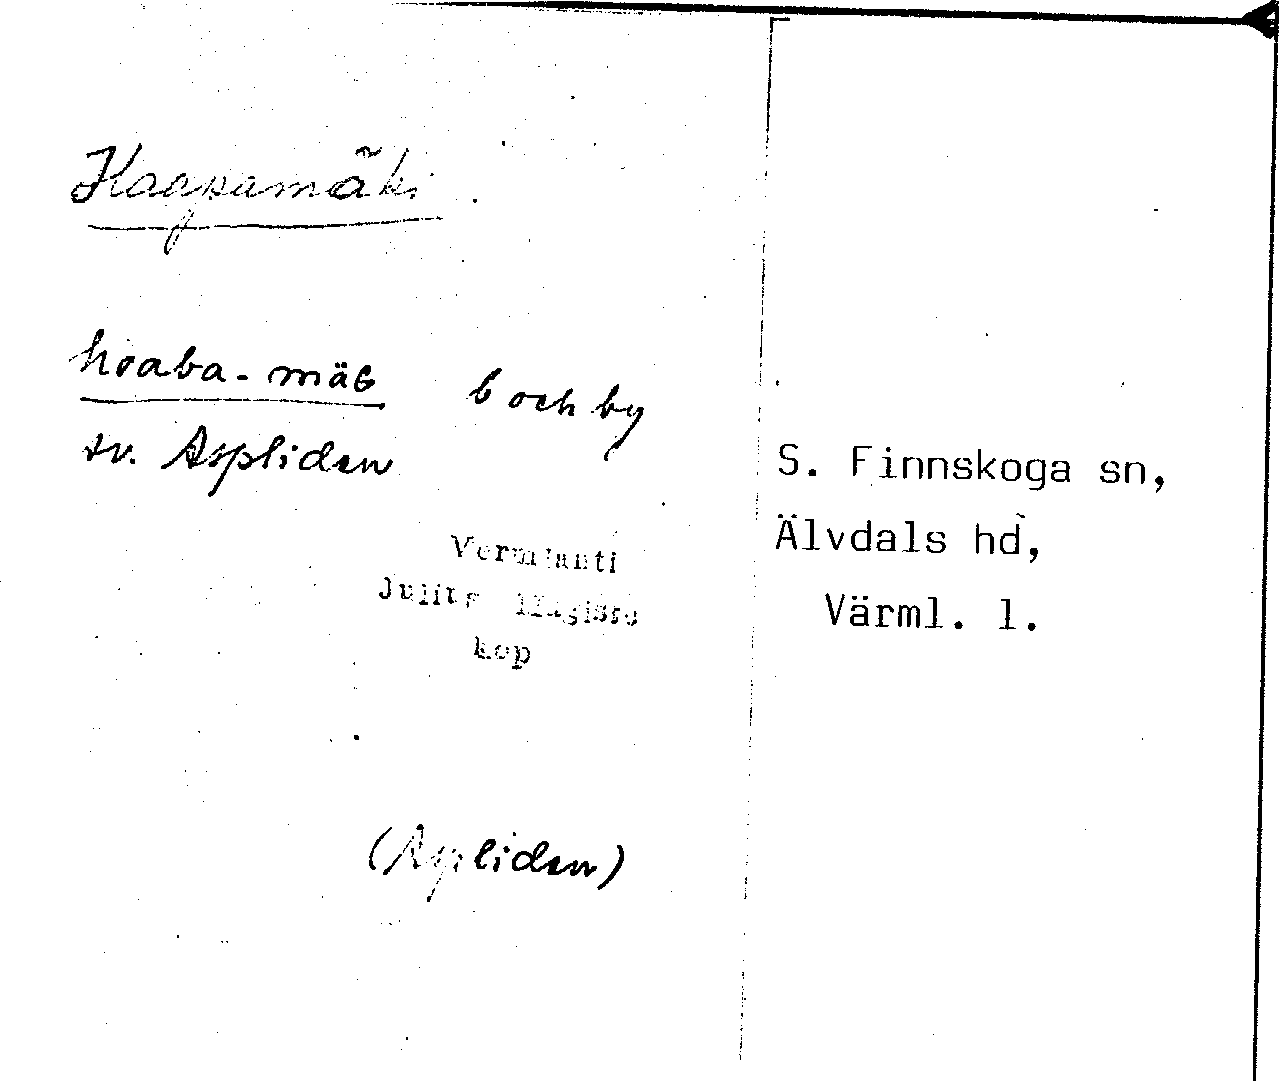 Haapamäki
hoaba-mäg b och by
sv. Aspliden
Vermlanti
Julius Mägiste
kop
(Aspliden)
S. Finnskoga sn,
Älvdals hd,
Värml. l.